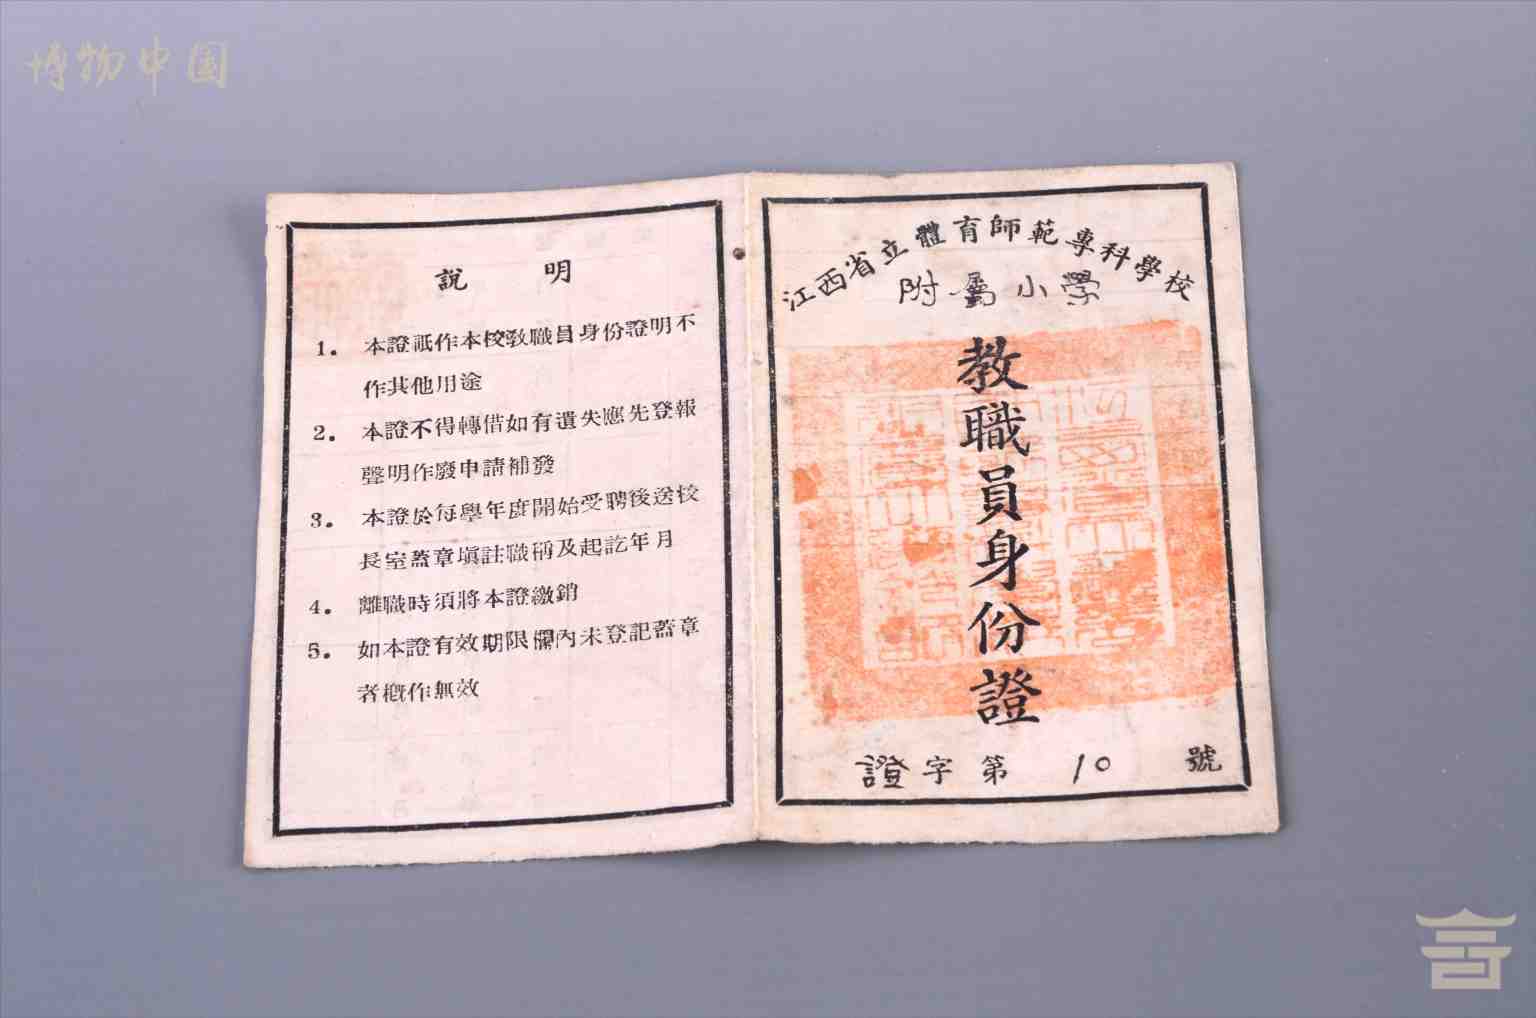 博物中国
説明
1. 本證祇作本校敎職員身份證明不
作其他用途
2. 本證不得轉借如有遺失應先登報
聲明作廢申請補發
3. 本證於每學年度開始受聘後送校
長室蓋章塡註職稱及起訖年月
4. 離職時須將本證繳銷
5. 如本證有效期限欄內未登記蓋章
者槪作無效
江西省立體育師範專科學校
附屬小學
教職員身份證
證字第10號